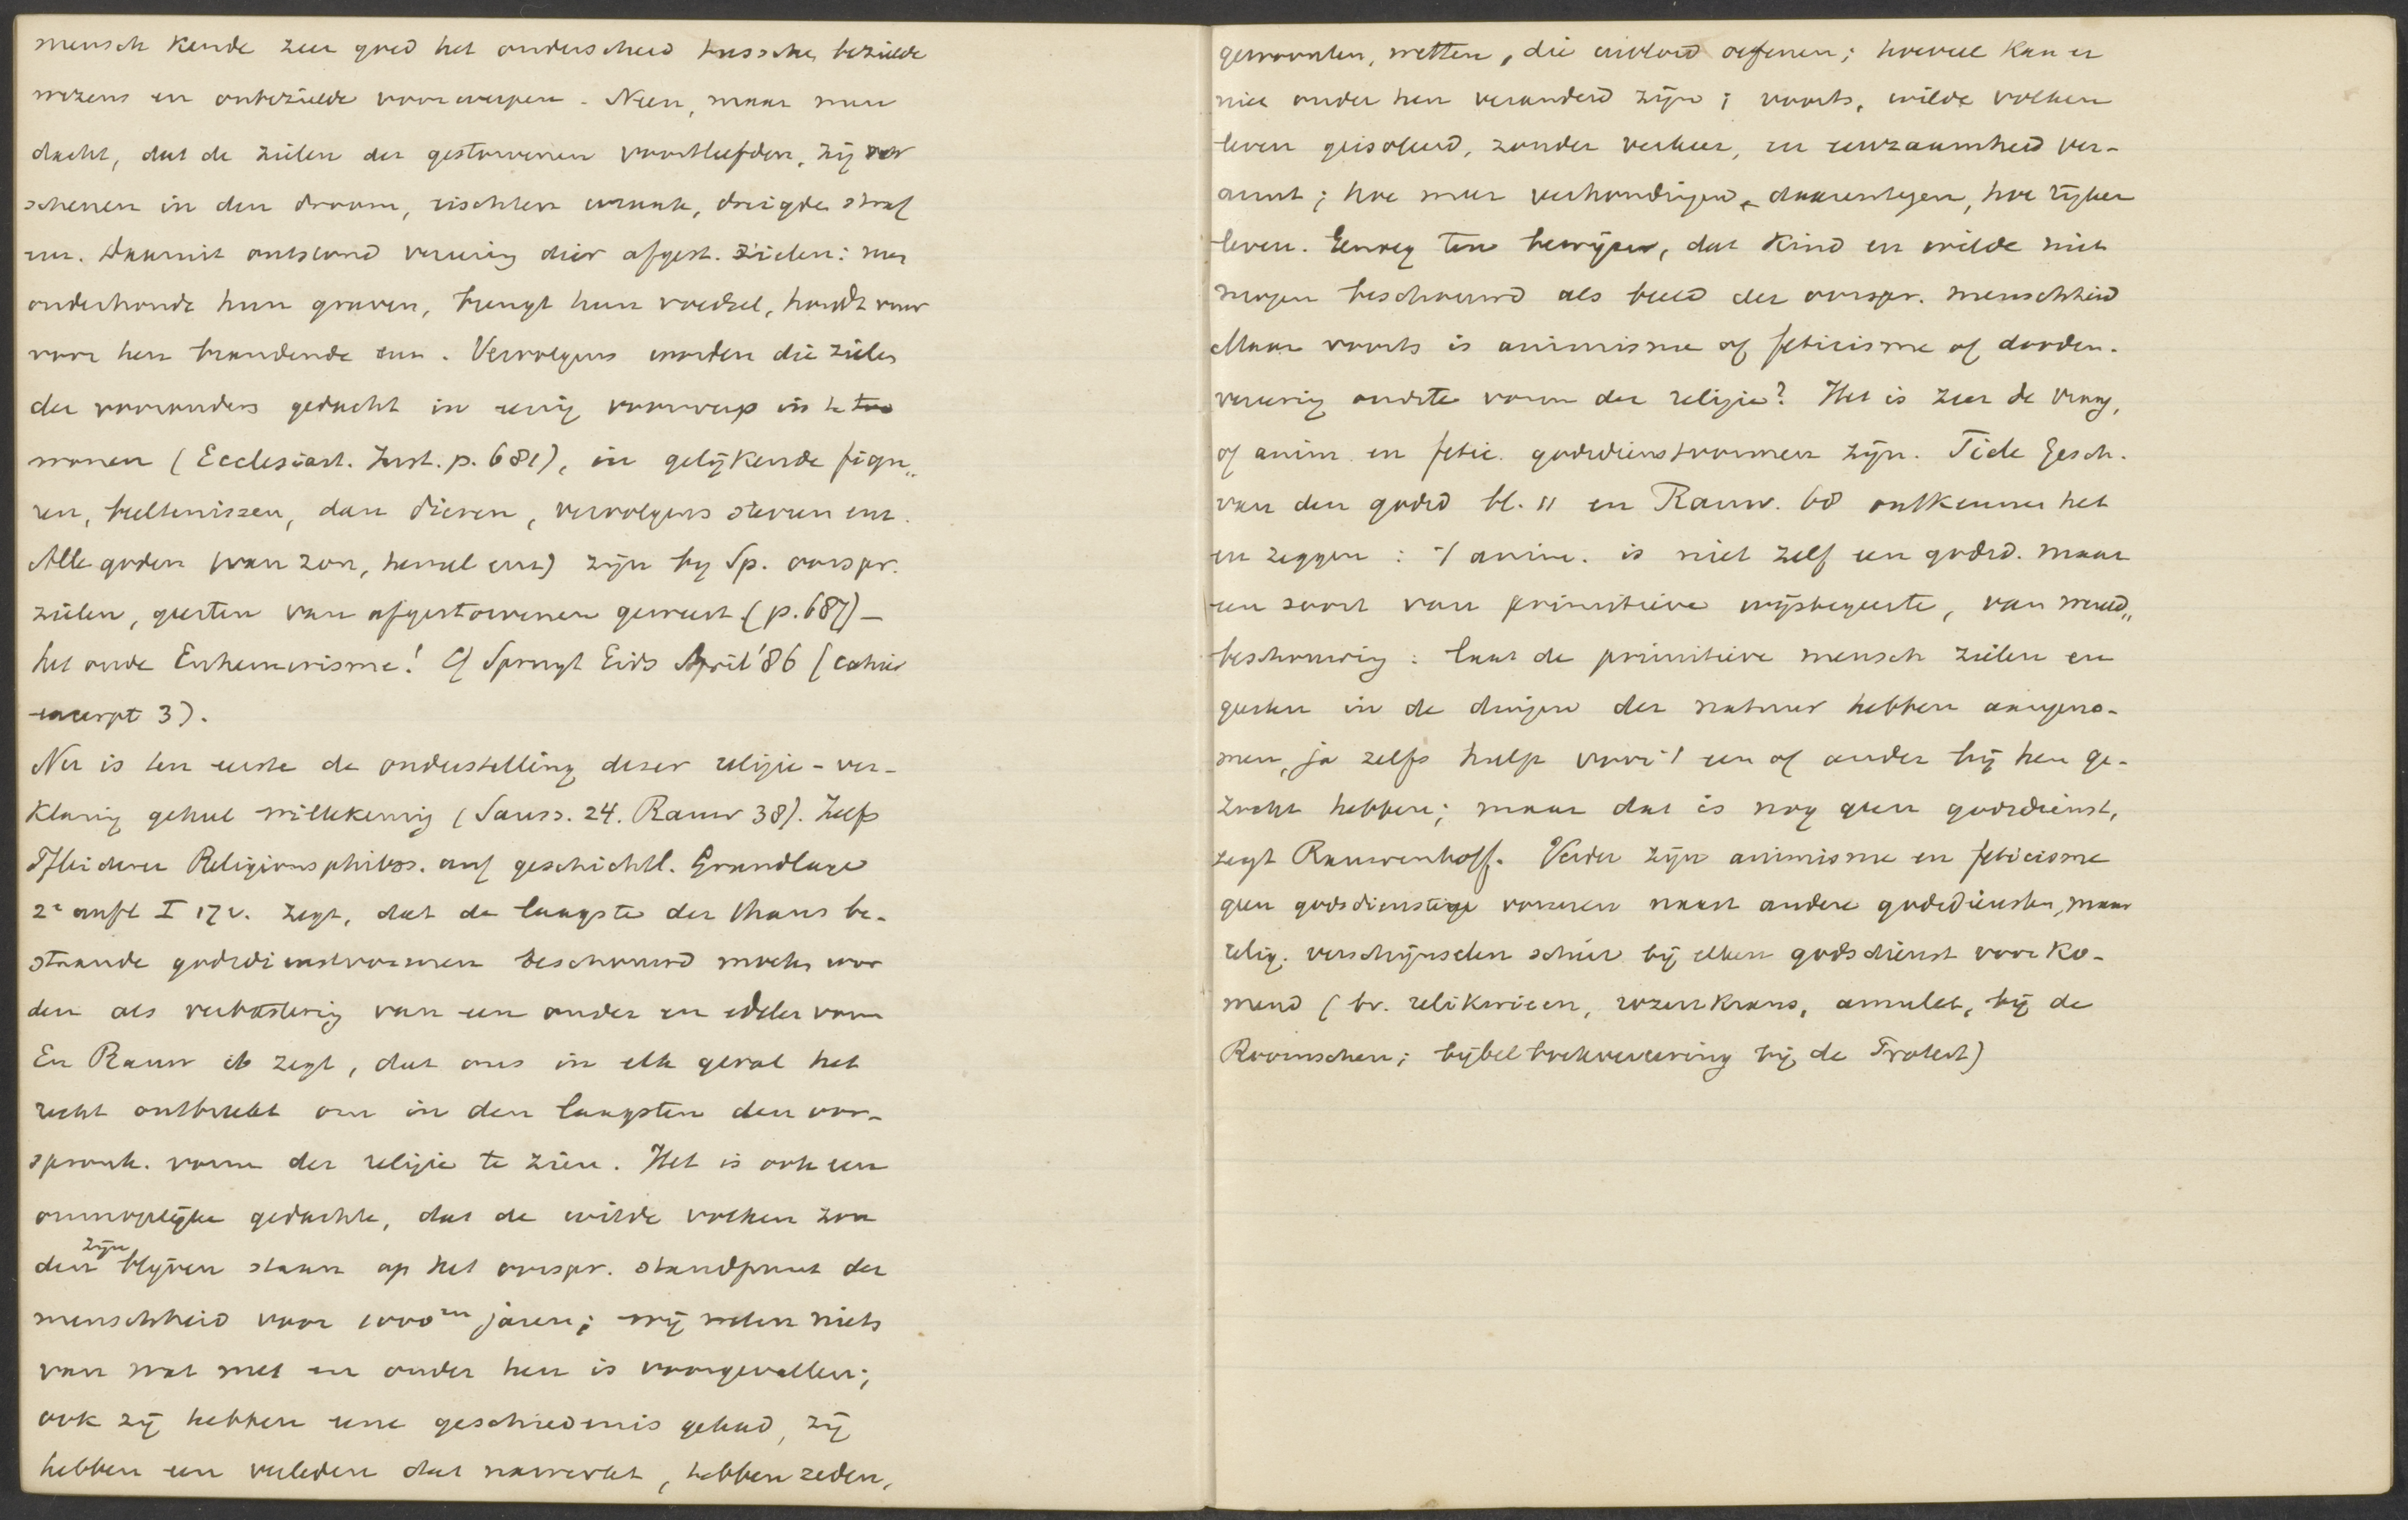 mensch kende zeer goed het onderscheid tusschen bezielde
wezens en onbezielde voorwerpen. Neen, maar men
dacht, dat de zielen der gestorvenen voortleefden, zij ver
schenen in den droom, richtten wraak, dreigden straf
enz. Daaruit ontstond vereering dier afgest. zielen: men
onderhoudt hun graven, brengt hun voedsel, houdt vuur
voor hen brandende enz. Vervolgens worden die zielen
der voorouders gedacht in eenig voorwerp in h. tro
wonen (Ecclesiast. Inst. p. 681), in gelijkende figu„
ren, beeltenissen, dan dieren, vervolgens sterren enz.
Alle goden (van zon, hemel enz) zijn by Sp. oorspr.
zielen, geesten van afgestorvenen geweest (p. 687) -
het oude Euhemerisme! Cf Spruyt Gids April '86 (cahier
excerpt 3).
Nu is ten eerste de onderstelling dezer religie-ver-
klaring geheel willekeurig (Sauss. 24. Rauw 38). Zelfs
Pfleiderer Religionsphilos. auf geschichtl. Grundlage
2e aufl I 17 v. zegt, dat de laagste der thans be-
staande godsdienstvormen beschouwd moeten wor
den als verbastering van een ouder en edeler vorm
En Rauw ib zegt, dat ons in elk geval het
recht ontbreekt om in den laagsten den oor-
spronk. vorm der religie te zien. Het is ook een
onmogelijke gedachte, dat de wilde volken zou
den zijn blijven staan op het oorspr. standpunt der
menschheid voor 1000en jaren; wij weten niets
van wat met en onder hen is voorgevallen;
ook zij hebben eene geschiedenis gehad, zij
hebben een verleden dat nawerkt, hebben zeden,
gewoonten, wetten, die invloed oefenen; hoeveel kan er
niet onder hen veranderd zijn; voorts, wilde volken
leven geisoleerd, zonder verkeer, en eenzaamheid ver-
armt; hoe meer verhoudingen daarentegen, hoe rijker
leven. Genoeg ten bewijze, dat kind en wilde niet
mogen beschouwd als beeld der oorspr. menschheid
Maar voorts is animisme of feticisme of dooden-
vereering oudste vorm der religie? Het is zeer de vraag,
of anim. en fetic. godsdienstvormen zijn. Tiele Gesch.
van den godsd bl. 11 en Rauw. 68 ontkennen het
en zeggen: 't anim. is niet zelf een godsd. maar
een soort van primitieve wijsbegeerte, van wereld„
beschouwing: laat de primitieve mensch zielen en
geesten in de dingen der natuur hebben aangeno-
men, ja zelfs hulp voor 't een of ander bij hen ge-
zocht hebben; maar dat is nog geen godsdienst,
zegt Rauwenhoff. Verder zijn animisme en feticisme
geen godsdienstige vormen naast andere godsdiensten, maar
relig. verschijnselen schier bij elken godsdienst voorko-
mend (bv. relikwieen, rozenkrans, amulet, bij de
Roomschen; bijbelboekvereering bij de Protest)